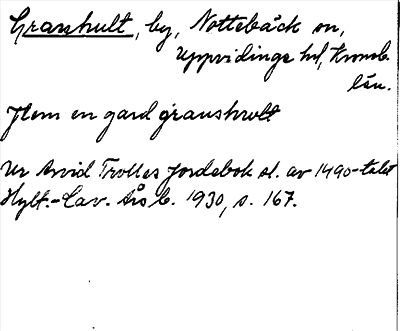 Granhult, by, Nottebäck sn,
Uppvidinge hd, Kronob.
län.
Jtem en gard granshwlt
Ur Arvid Trolles Jordebok sl. av 1490-talet
Hylt.-Cav. Års b. 1930, s. 167.